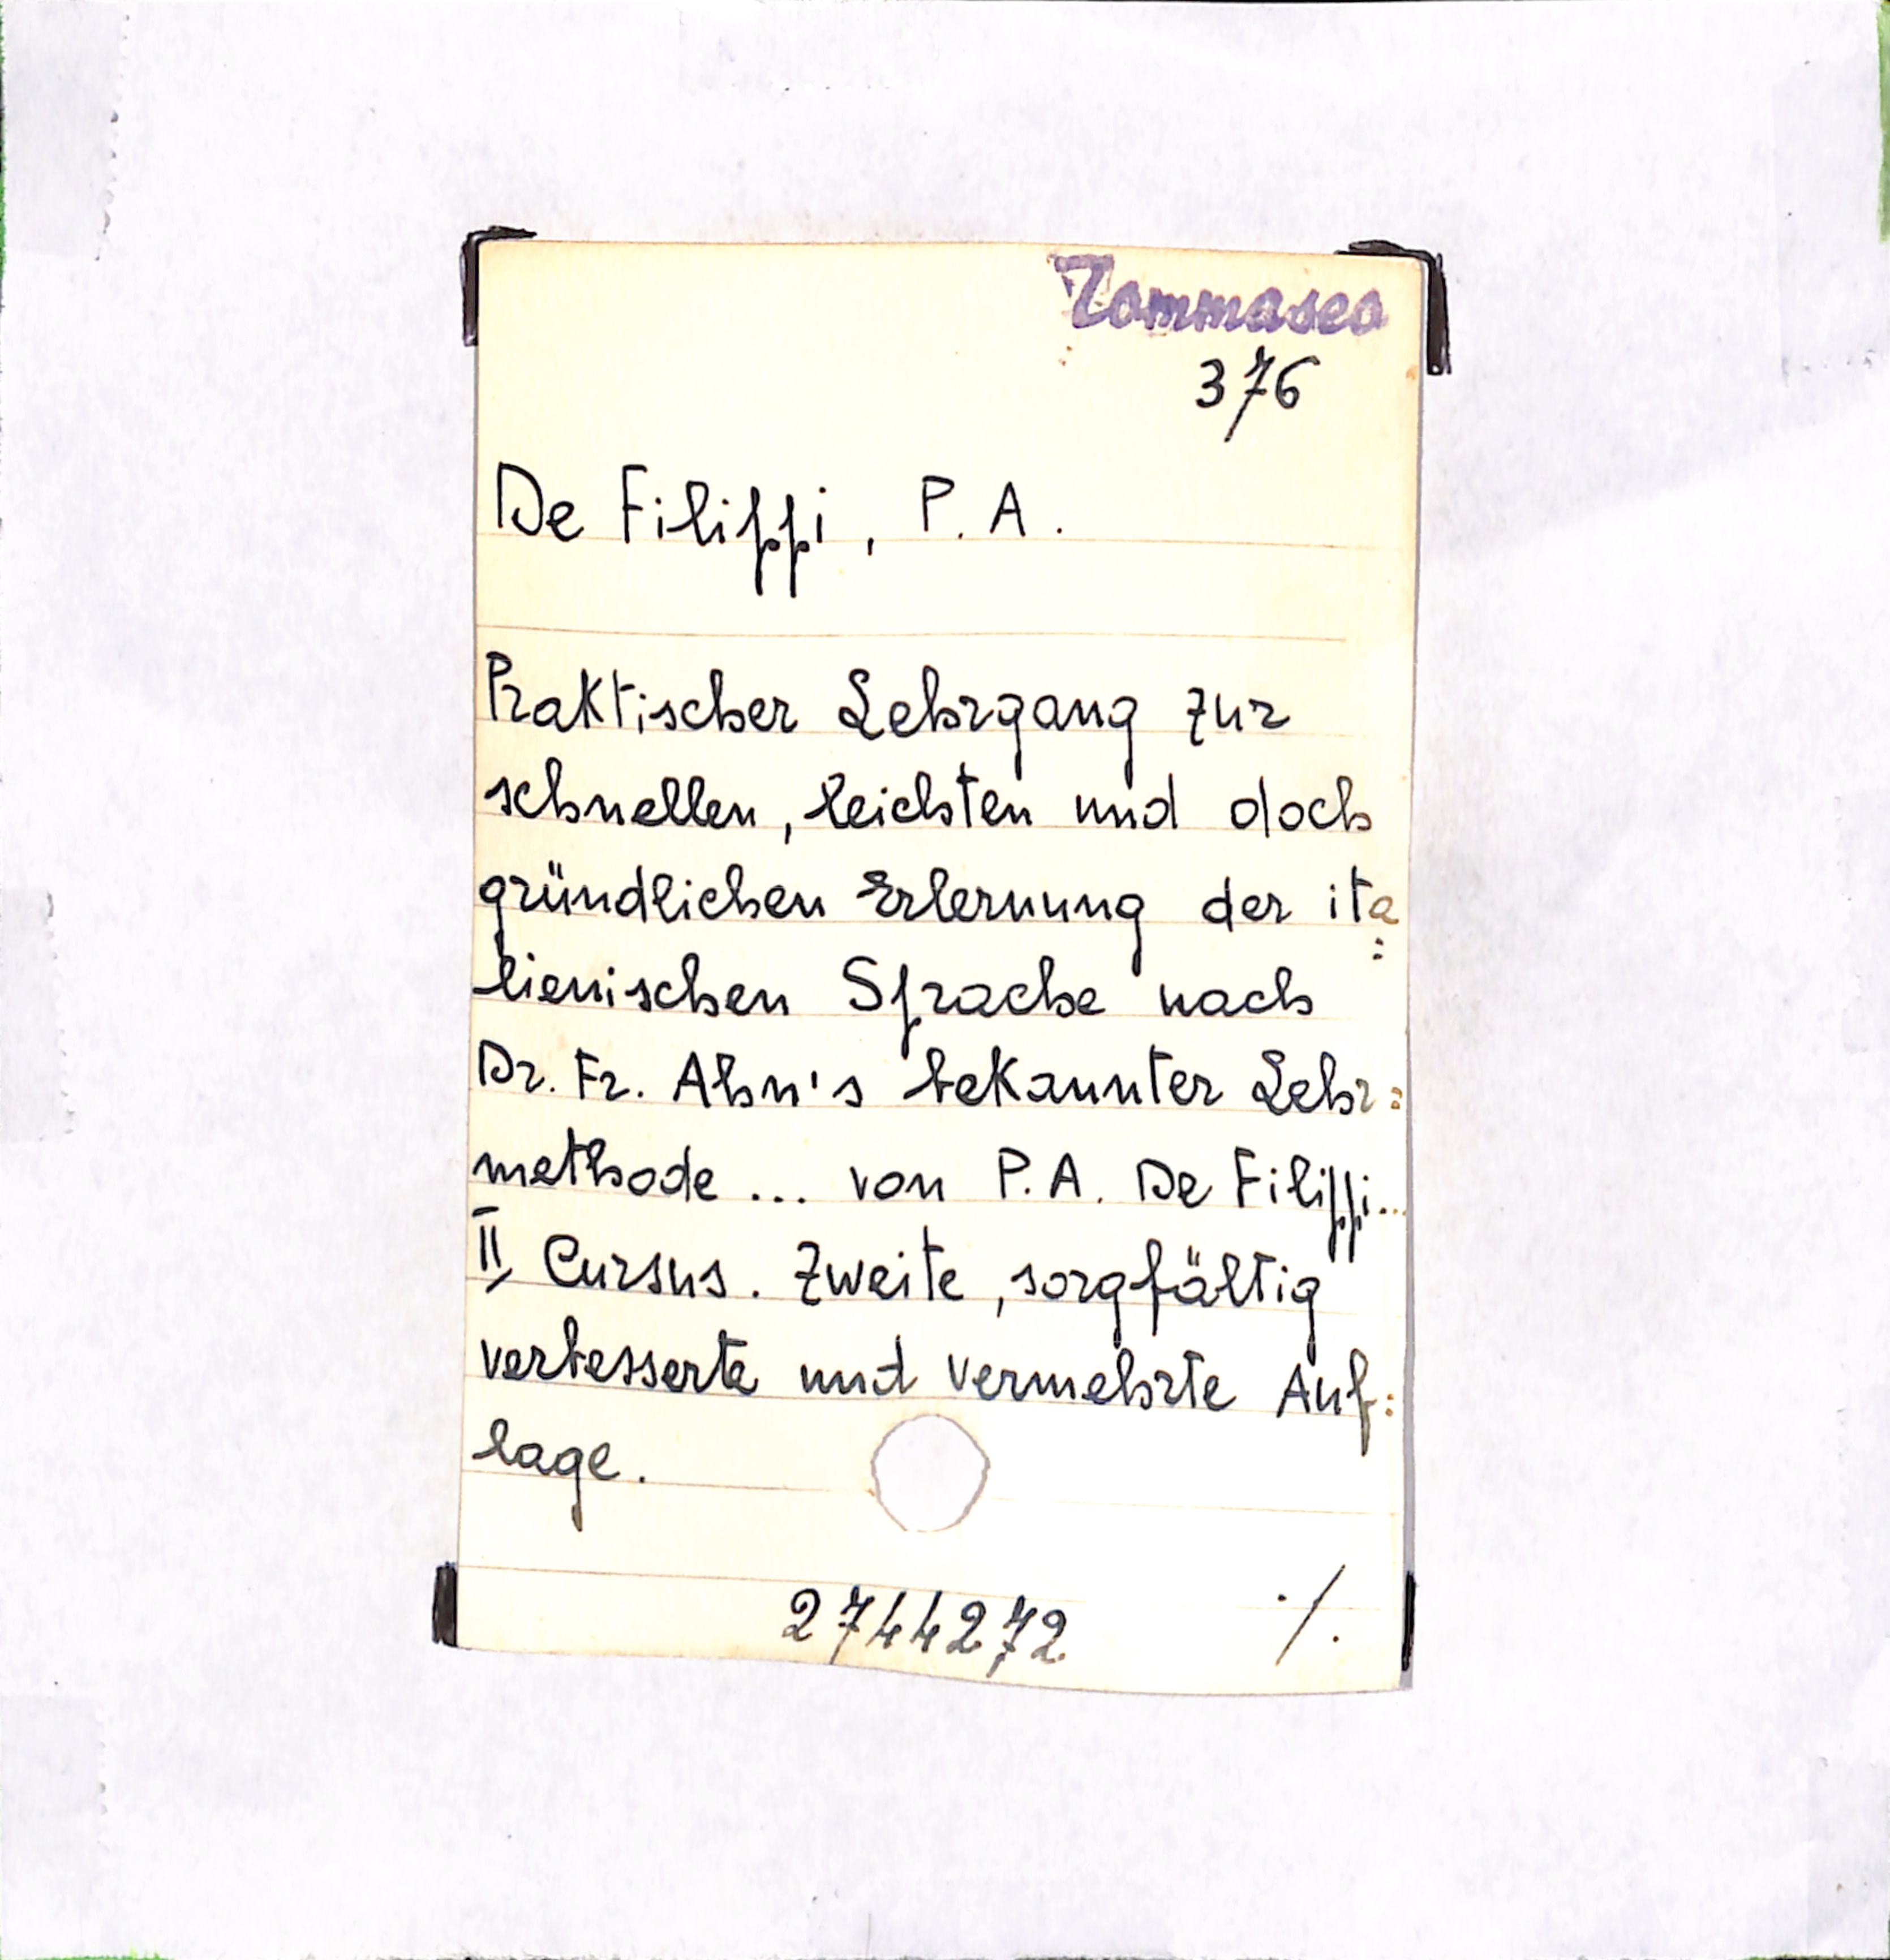 Tommaseo
376
De Filippi, P. A.
Praktischer Lehrgang zur
schnellen, leichten und doch
gründlichen Erlernung der ita
:
lienischen Sprache nach
Dr. Fr. Ahn's bekannter Lehr:
methode ... von P. A. De Filippi...
II Cursus. Zweite, sorgfältig
verbesserte und vermehrte Auf:
lage.
2744272 ·/.